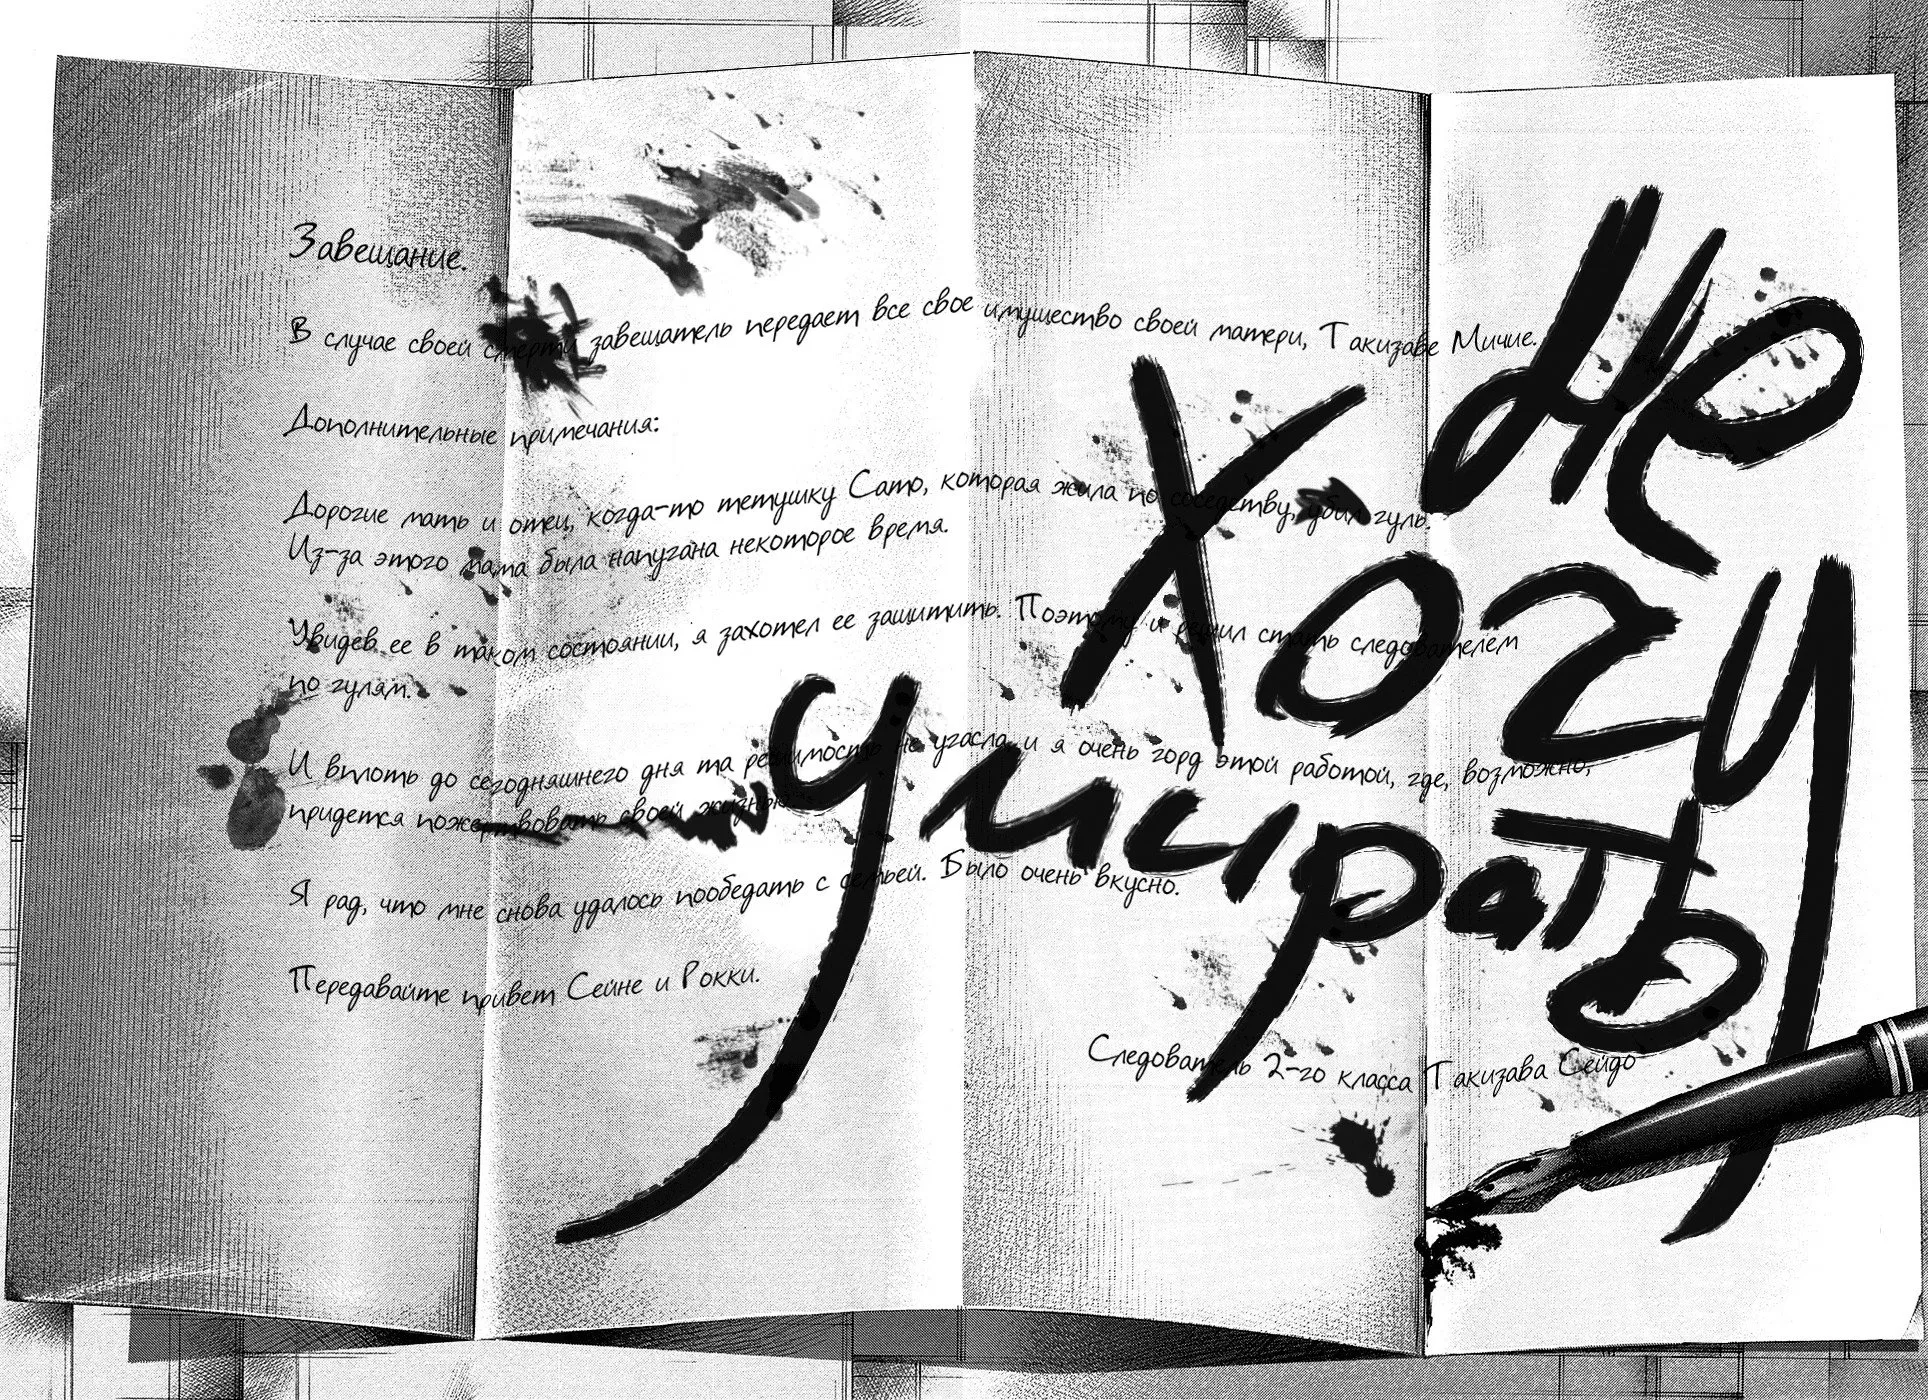 Завещание.
В случае своей смерти завещатель передает все свое имущество своей матери, Такизаве Мичие.
Дополнительные примечания:
Дорогие мать и отец, когда-то тетушку Сато, которая жила по соседству, убил гуль.
Из-за этого мама была напугана некоторое время.
Увидев ее в таком состоянии, я захотел ее защитить. Поэтому и решил стать следователем
по гулям.
И вплоть до сегодняшнего дня та решимость не угасла, и я очень горд этой работой, где, возможно,
придется пожертвовать своей жизнью.
Я рад, что мне снова удалось пообедать с семьей. Было очень вкусно.
Передавайте привет Сейне и Рокки.
Следователь 2-го класса Такизава Сейдо
Не
хочу
умирать